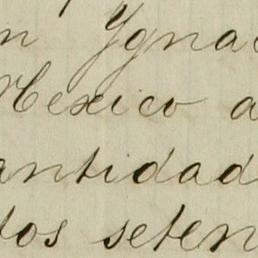 n Ygnac
Mexico a
antidad
tos seten